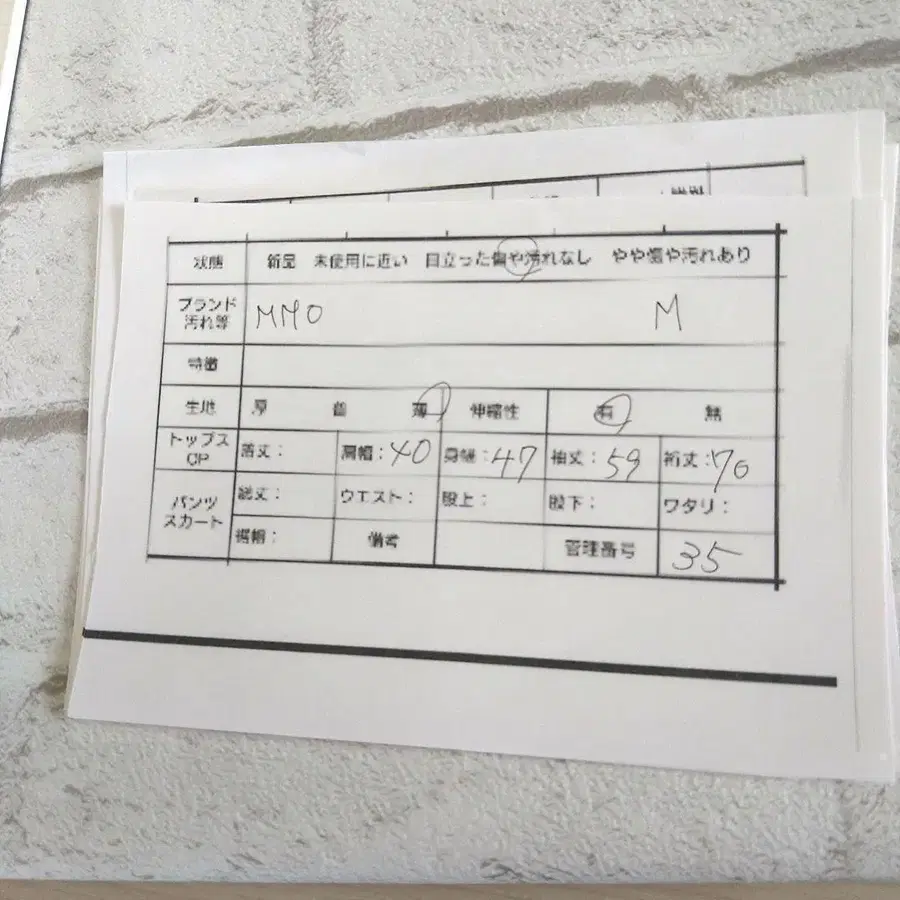 状態 新品 未使用に近い 目立った傷や汚れなし やや傷や汚れあり
ブランド
汚れ等 MMO M
特徴
生地 厚 普 薄 伸縮性 有 無
トップス
OP 着丈： 肩幅：40 身幅：47 袖丈：59 裄丈：76
パンツ
スカート 総丈： ウエスト： 股上： 股下： ワタリ：
裾幅： 備考 管理番号 35